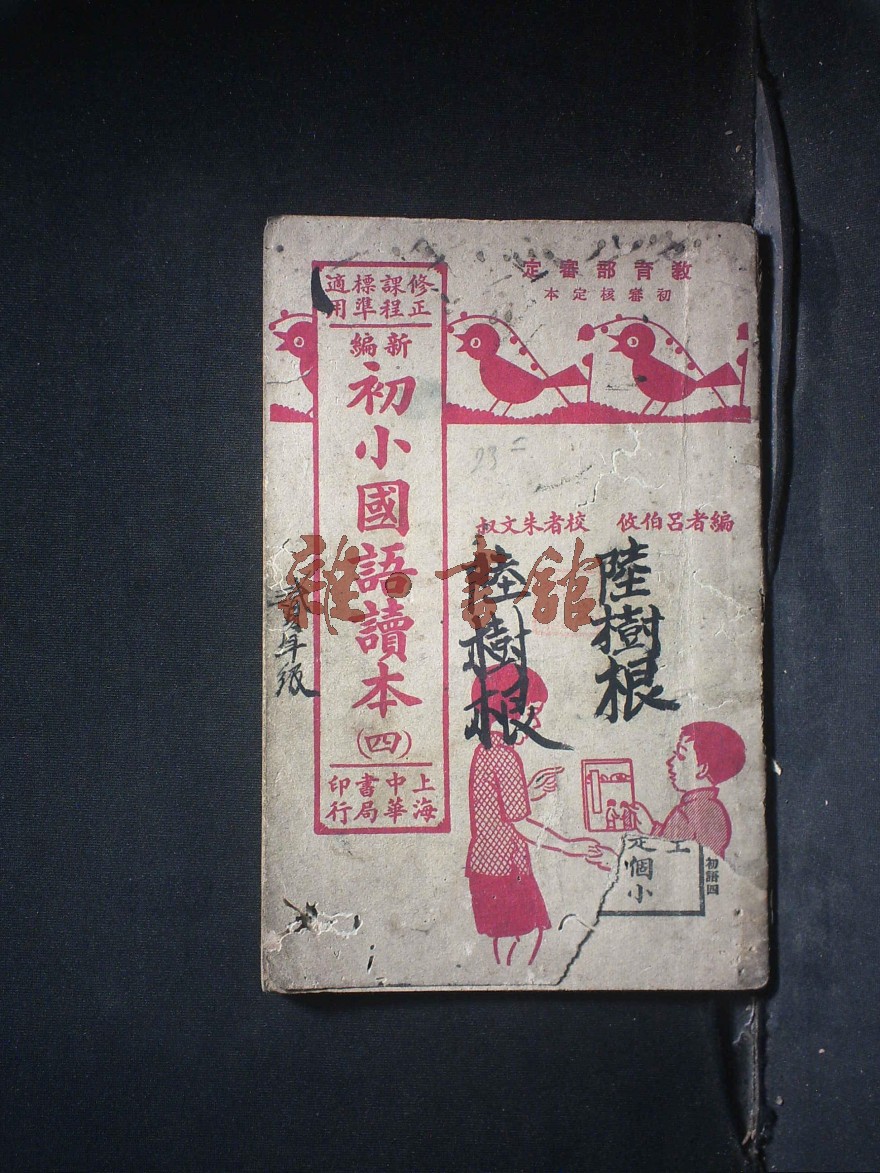 教育部審定
初審核定本
修正課程標準適用
新編
初小國語讀本
(四)
上海中華書局印行
編者呂伯攸
校者朱文叔
陸樹根
陸樹根
貳年級
23 二
雜·書館
工
定個小
初語四